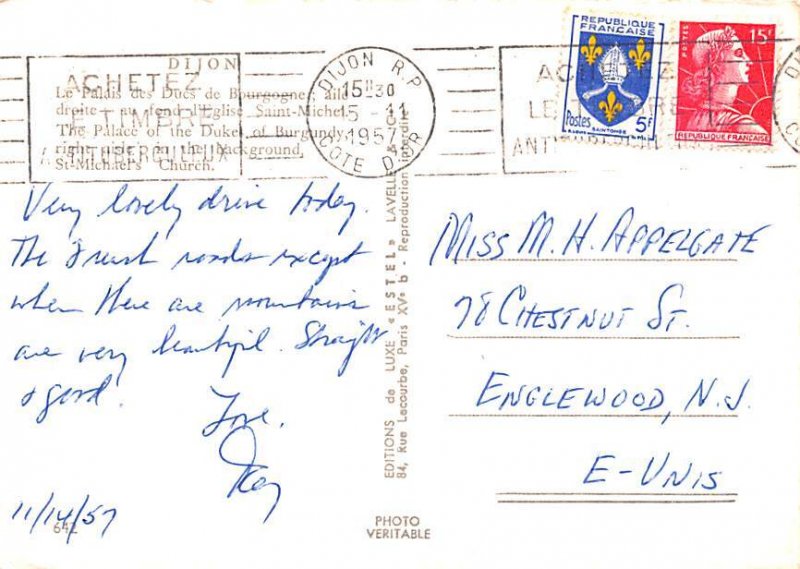 DIJON
Le Palais des Ducs de Bourgogne, à
droite - au fond l'Eglise Saint-Michel.
The Palace of the Dukes of Burgundy,
right, in the background,
St-Michael's Church.
ACHETEZ
LE TIMBRE
ANTITUBERCULEUX
DIJON R.P.
15H30
15-11
1957
COTE D'OR
ACHETEZ
LE TIMBRE
ANTITUBERCULEUX
REPUBLIQUE
FRANÇAISE
Postes
5F
SAINTONGE
POSTES
15F
REPUBLIQUE FRANÇAISE
Very lovely drive today.
The French roads except
when there are mountains
are very beautiful. Straight
& good.
Love,
11/14/57
642
EDITIONS de LUXE « ESTEL » LAVELLE &
84, Rue Lecourbe, Paris XVe b - Reproduction interdite
PHOTO
VERITABLE
MISS M. H. APPELGATE
78 CHESTNUT ST.
ENGLEWOOD, N.J.
E-UNIS